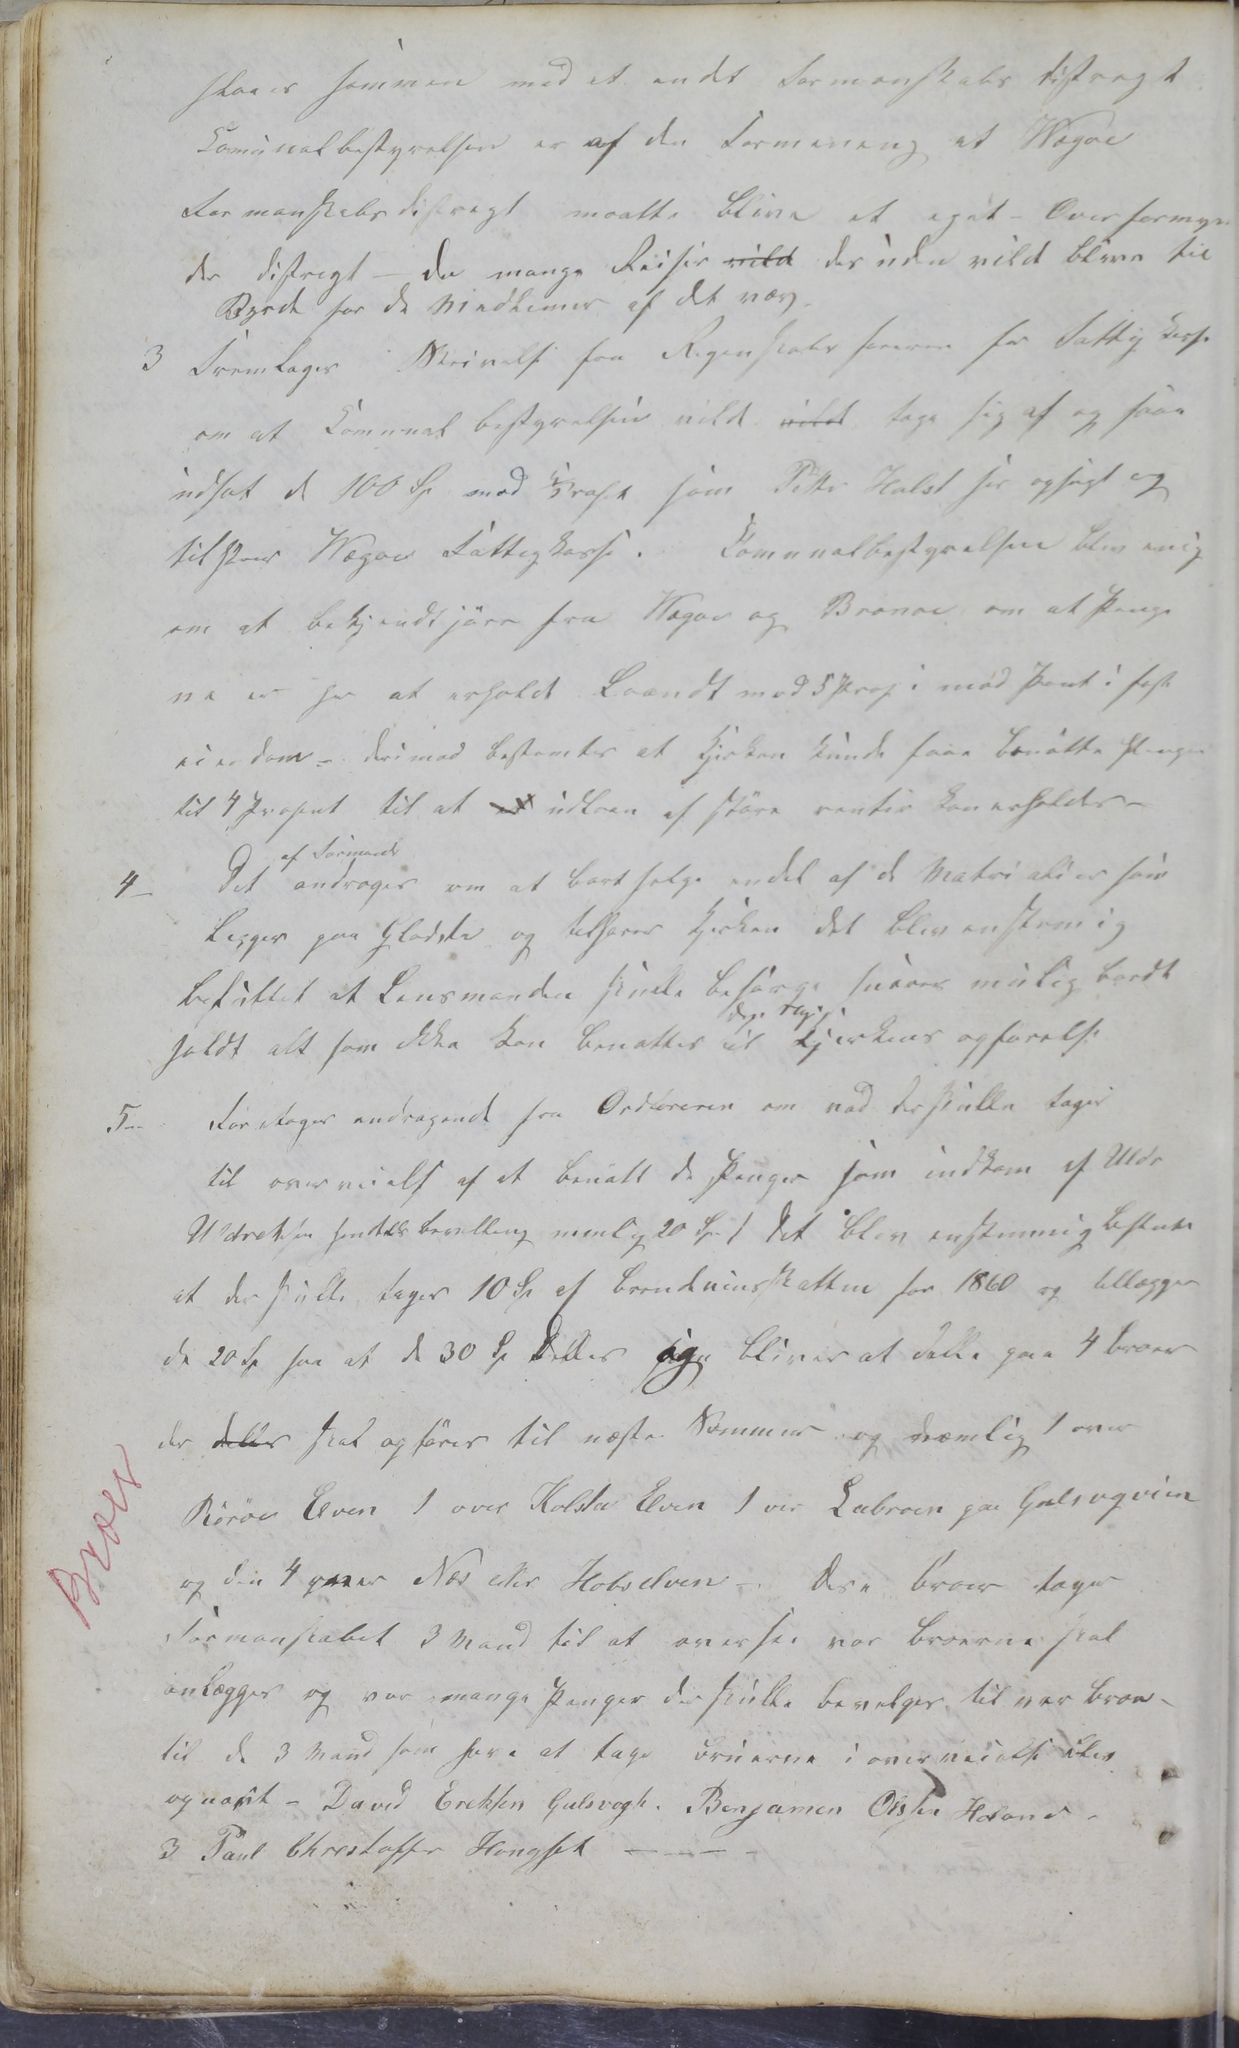 staaer sammen med et andet Formanskabs distregt
Comunalbestyrelsen er af den Formening at Wægøe
Formanskabs distregt maatte blive et eget Overformyn
der distregt – de mange Reiser vild des uden vild blive til
Byrde for de Medlemer af det
3 Fremlages Skrivelse fra Regenskabs føreren for Fattig kasse
om at Comunal bestyrelsen vild vild tage sig af og faae
udsat de 100 Sp mod som Petter Holst har opsagt og
tilhører Wægøe Fattigkasse. Comunalbestyrelsen blev enig
om at bekjendtjøre fra Wægøe og Brønøe om at Penge
ne er her at erholde Laandt mod 5 Pros i mod Pant i fast
eiendom – derimod bestemtes at Kjirken kunde faae benøtte Penger
til 4 Prosent til at udlaan af støre renter kan erholdes –
af Formand
4 – Det androges om at bort selge endel af de Matrialier som
Legger paa Gladsta og tilhører Kjirken det blev enstemig
besluttet at Lensmanden skulle besørge snarest mulig bordt
soldt alt som ikke kan benøttes til Kjirkens opførelse
5 – Foretages andragende fra Ordføreren om vad der skulle tages
til overveielse af at benøtt de Penger som indkom af Uldr
Uldreksen handels bevelling nemlig 20 Sp / det blev enstemmig bestemt
at der skulle tages 10 Sp af brendevinsskatten for 1860 og tillegges
de 20 Sp saa at de 30 Sp Deles igen bliver at delle paa 4 broer
der deles skal opføres til neste Sommer og nemlig 1 over
Rørøe Elven 1 over Holsta Elven 1 ver Labroen paa Gulsvogvien
og den 4 over Nes eller Hobselven – dese broer tager
Formanskabet 3 Mand til at overse vor broerne skal
anlægges og vor mange Penger der skulle bevelges til ver broe –
til de 3 Mand som have at tage bruerne i overveielse blev
opnævt – David Ereksen Gulsvogh. Benjamen Olsen Holand –
3 Paul Chrestoffer Hongset – – – –
Broer